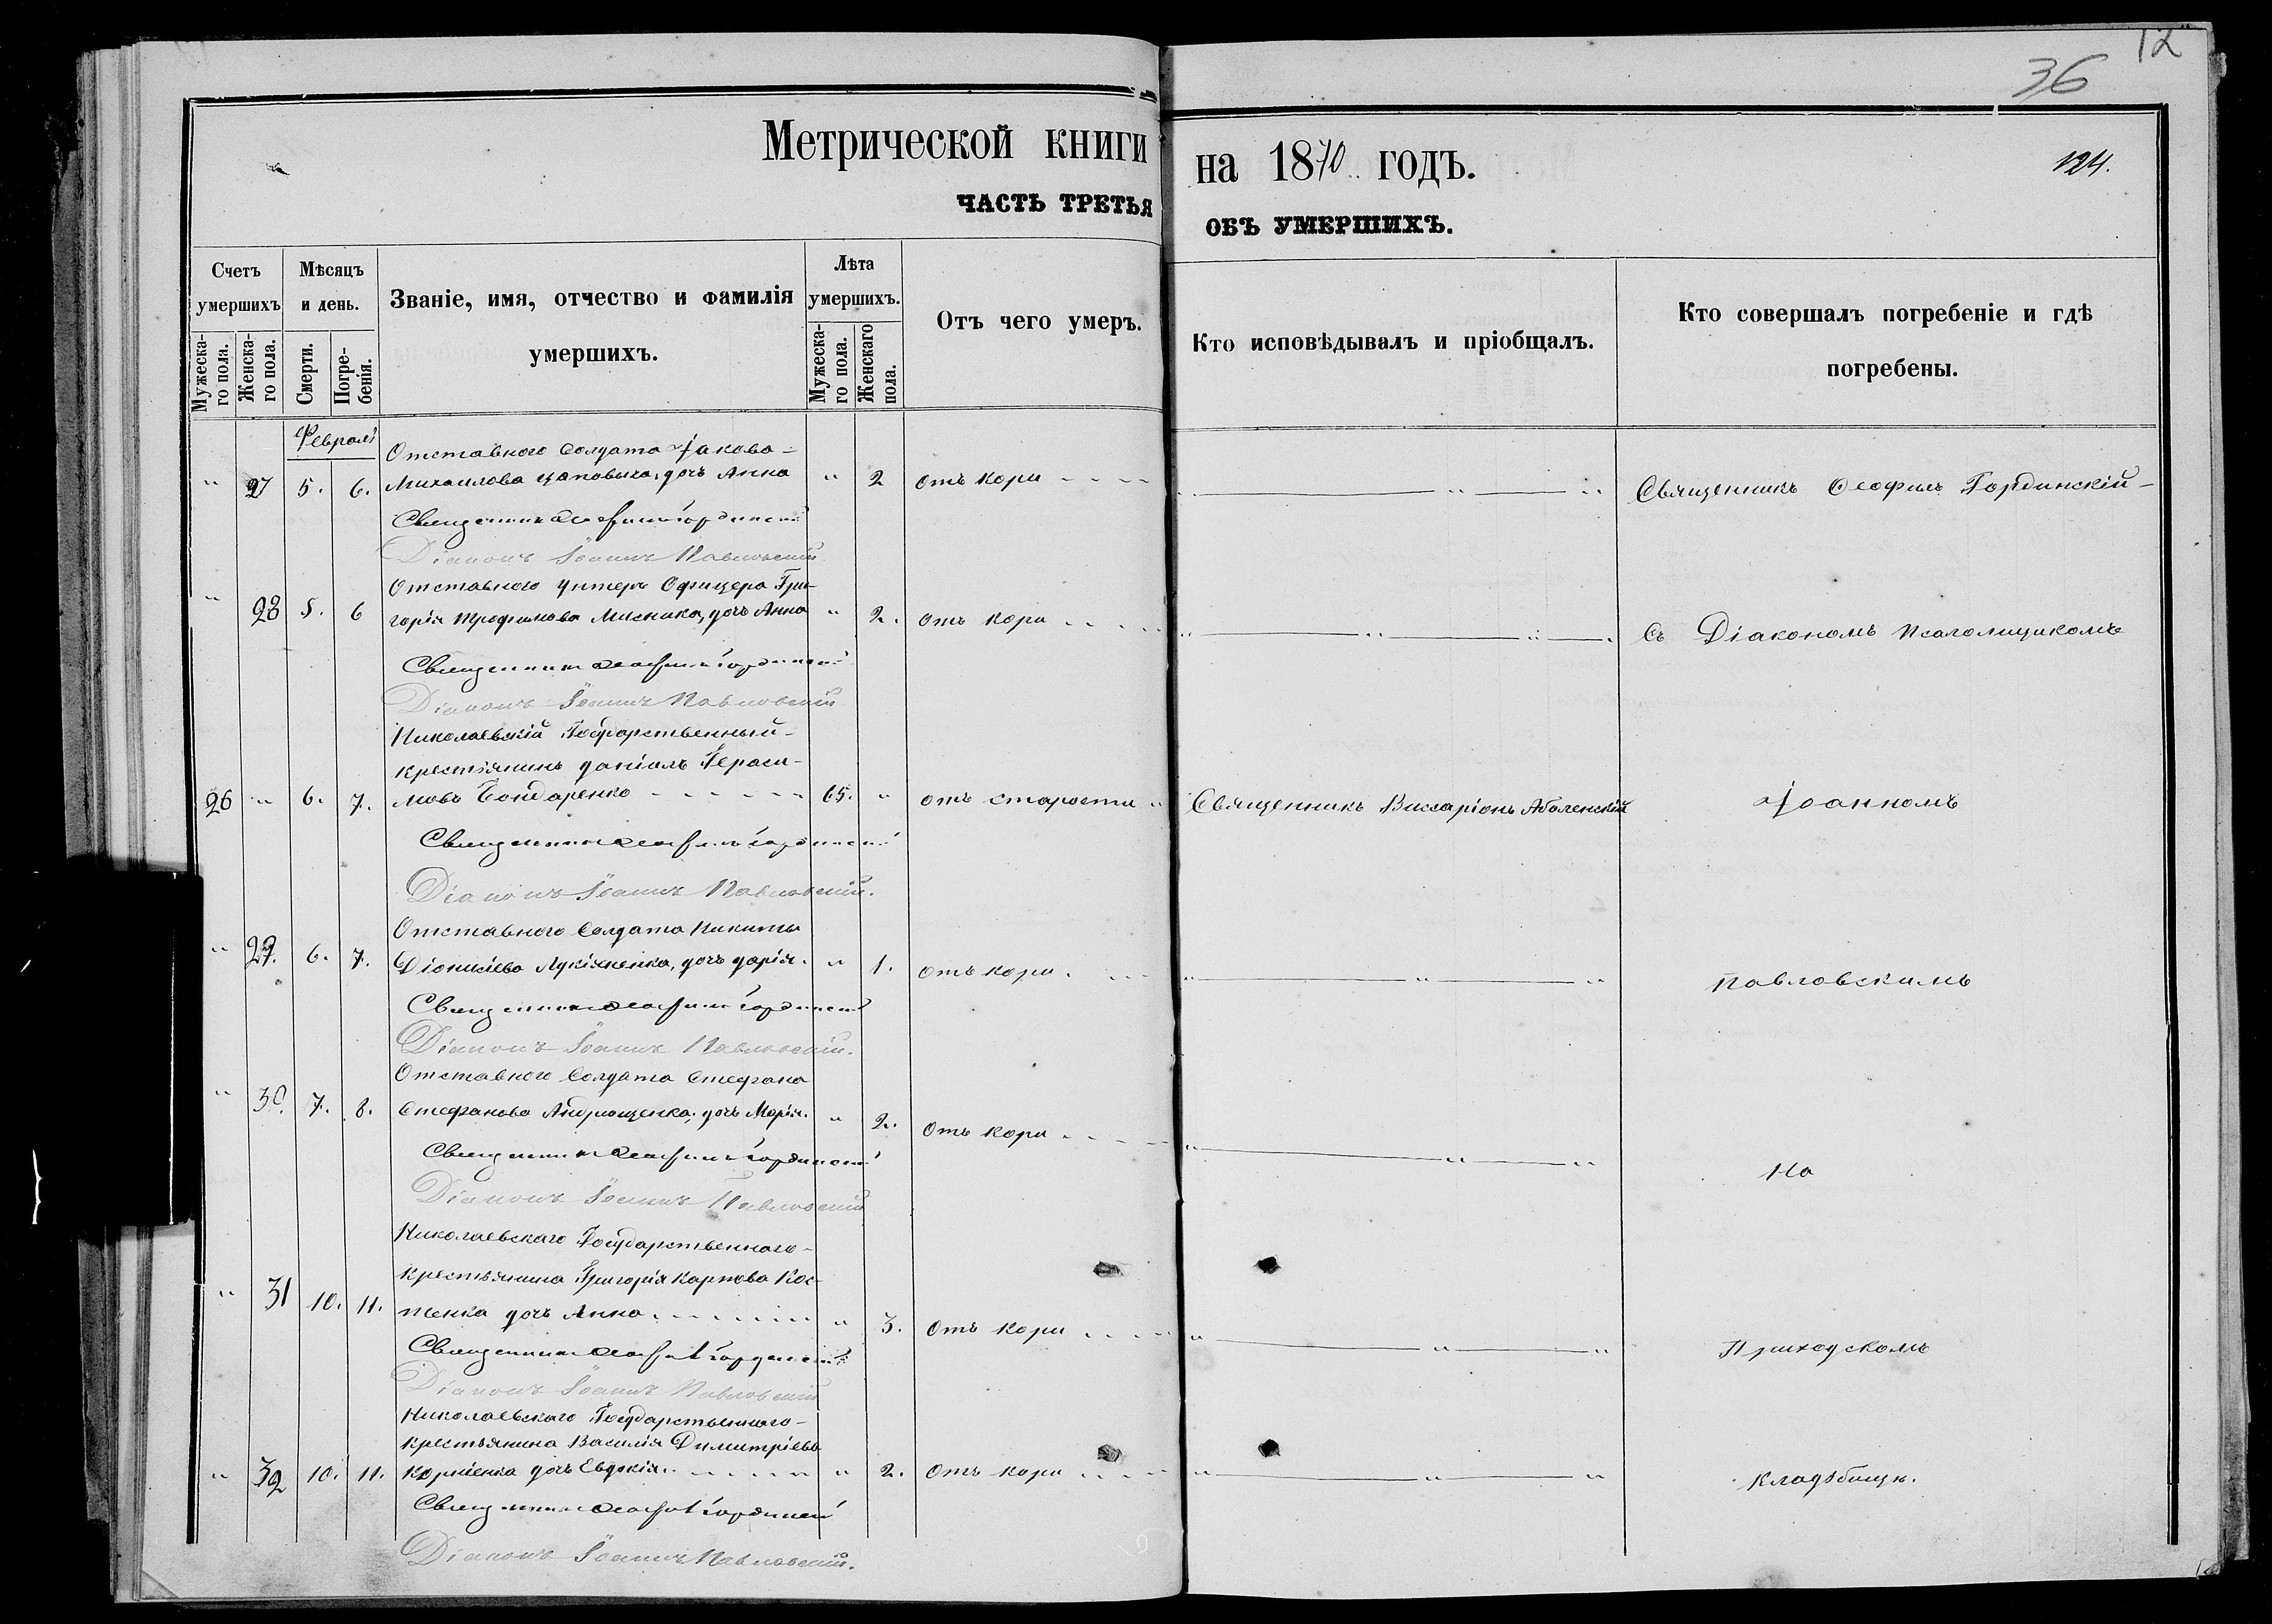 12
36
Метрической книги на 1870 годъ.
124.
ЧАСТЬ ТРЕТЬЯ ОБЪ УМЕРШИХЪ.
Счетъ умершихъ
Мужеска-го пола.
Женска-го пола.
Мѣсяцъ и день.
Смерти.
Погре-бенія.
Званіе, имя, отчество и фамилія умершихъ.
Лѣта умершихъ.
Мужеска-го пола.
Женскаго пола.
Отъ чего умеръ.
Кто исповѣдывалъ и пріобщалъ.
Кто совершалъ погребеніе и гдѣ погребены.
Февраль
Отставного Солдата Іакова
" 27 5. 6. Михаилова Цаповыча, дочъ Анна " 2 отъ кори
Священникъ Ѳеофилъ Гординскій
Священникъ Ѳеофилъ Гординскій
Діаконъ Іоаннъ Павловскій
Отставного Унтеръ Офицера Гри-
" 28 5. 6 горія Трофимова Мисника, дочъ Анна " 2. отъ кори
Съ Діакономъ Псаломщикомъ
Священникъ Ѳеофилъ Гординскій
Діаконъ Іоаннъ Павловскій
Николаевскій Государственный
крестьянинъ Даніилъ Гераси-
26 " 6. 7. мовъ Бондаренко 65. " отъ старости " Священникъ Виссаріонъ Аболенскій
Іоанномъ
Священникъ Ѳеофилъ Гординскій
Діаконъ Іоаннъ Павловскій.
Отставного Солдата Никиты
" 29. 6. 7. Діонисіева Лукіяненка, дочъ Дарія. " 1. отъ кори.
Павловскимъ
Священникъ Ѳеофилъ Гординскій
Діаконъ Іоаннъ Павловскій.
Отставного Солдата Стефана
" 30. 7. 8. Стефанова Андрющенка, дочъ Марія. " 2. Отъ кори
На
Священникъ Ѳеофилъ Гординскій
Діаконъ Іоаннъ Павловскій
Николаевскаго Государственнаго
крестьянина Григорія Карпова Кос-
" 31 10. 11. тенка дочъ Анна " 3. Отъ кори
Приходскомъ
Священникъ Ѳеофилъ Гординскій
Діаконъ Іоаннъ Павловскій
Николаевскаго Государственнаго
крестьянина Василія Димитріева
" 32 10. 11. Корніенка дочъ Евдокія. " 2. Отъ кори
кладбищѣ.
Священникъ Ѳеофилъ Гординскій
Діаконъ Іоаннъ Павловскій.